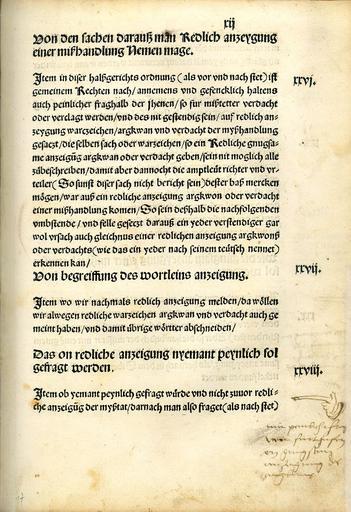 xij
Von den sachen darauß man Redlich anzeygung
einer mißhandlung Nemen mage.
xxvj.
Item in diser halßgerichts ordnung (als vor vnd nach stet) ist
gemeinem Rechten nach/ annemens vnd gefencklich haltens
auch peinlicher fraghalb der jhenen/ so fur mißtetter verdacht
oder verclagt werden/ vnd des nit gestendig sein/ auf redlich an-
zeygung warzeichen/ argkwan vnd verdacht der mißhandlung
gesatzt/ die selben sach oder warzeichen/ so ein Redliche gnugsa-
me anzeigūg argkwan oder verdacht geben/ sein nit moglich alle
zubeschreiben/ damit aber dannocht die amptleut richter vnd vr-
teiler (So sunst diser sach nicht bericht sein) dester baß mercken
mögen/ war auß ein redliche anzeigung argkwon oder verdacht
einer mißhandlung komen/ So sein deßhalb die nachfolgenden
vmbstende/ vnd felle gesetzt darauß ein yeder verstendiger gar
wol vrsach auch gleichnus einer redlichen anzeigung argkwonß
oder verdachts (wie das ein yeder nach seinem teutsch nennet)
erkennen kan/
Von begreiffung des wortleins anzeigung.
xxvij.
Item wo wir nachmals redlich anzeigung melden/ da wöllen
wir alwegen redliche warzeichen argkwan vnd verdacht auch ge
meint haben/ vnd damit übrige wörtter abschneiden/
Das on redliche anzeigung nyemant peynlich sol
gefragt werden.
xxviij.
Item ob yemant peynlich gefragt würde vnd nicht zuuor redli-
che anzeigūg der myßtat/ darnach man also fraget (als nach stet)